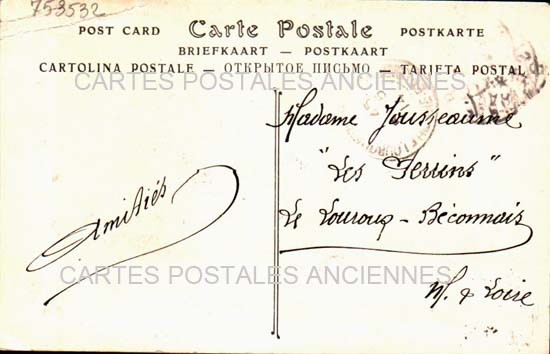 753532
POST CARD Carte Postale POSTKARTE
BRIEFKAART — POSTKAART
CARTOLINA POSTALE — ОТКРЫТОЕ ПИСЬМО — TARJETA POSTAL
CARTES POSTALES ANCIENNES
Madame Jousseaume
"Les Perrins"
Le Louroux - Béconnais
M. & Loire
Amitiés
CARTES POSTALES ANCIENNES